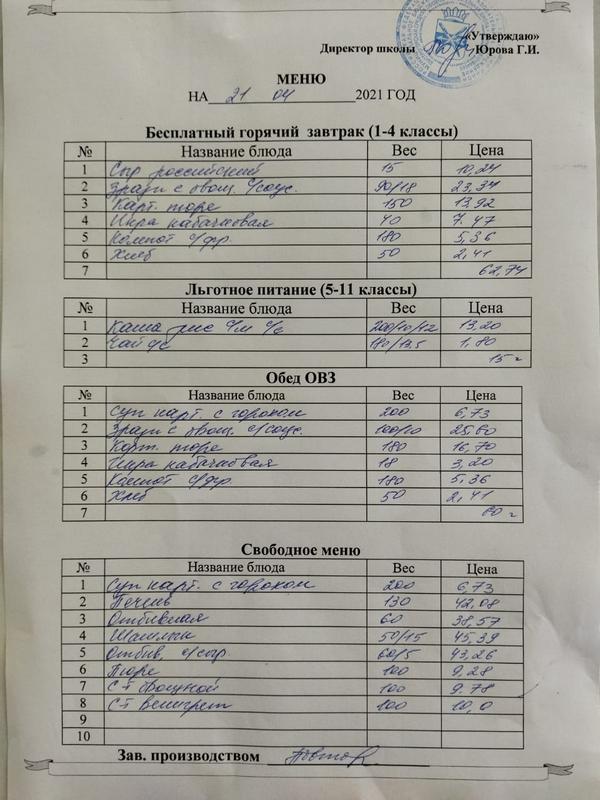 «Утверждаю»
Директор школы Юрова Г.И.
МЕНЮ
НА 21 04 2021 ГОД
Бесплатный горячий завтрак (1-4 классы)
№ Название блюда Вес Цена
1 Сыр российский 15 10,24
2 Зразы с овощ. с/соус. 90/18 23,34
3 Карт. пюре 150 13,92
4 Икра кабачковая 40 7.47
5 Компот с/фр. 180 5,36
6 Хлеб 50 2,41
7 62,74
Льготное питание (5-11 классы)
№ Название блюда Вес Цена
1 Каша рис с/м 13,20
2 Чай 180/13,5 1,80
3 15
Обед ОВЗ
№ Название блюда Вес Цена
1 Суп карт. с горохом 200 6,73
2 Зразы с овощ. с/соус. 25,80
3 Карт. пюре 180 16,70
4 Икра кабачковая 18 3,20
5 Компот с/фр 180 5,36
6 Хлеб 50 2,41
7 60
Свободное меню
№ Название блюда Вес Цена
1 Суп карт. с горохом 200 6,73
2 Печень 130 42,08
3 Отбивная 60 38,57
4 Шашлык 50/15 45,39
5 Отбив. с/сыр. 60/5 43,26
6 Пюре 100 9,28
7 С-т Овощной 100 9.78
8 С-т Венигрет 100 10,0
9
10
Зав. производством